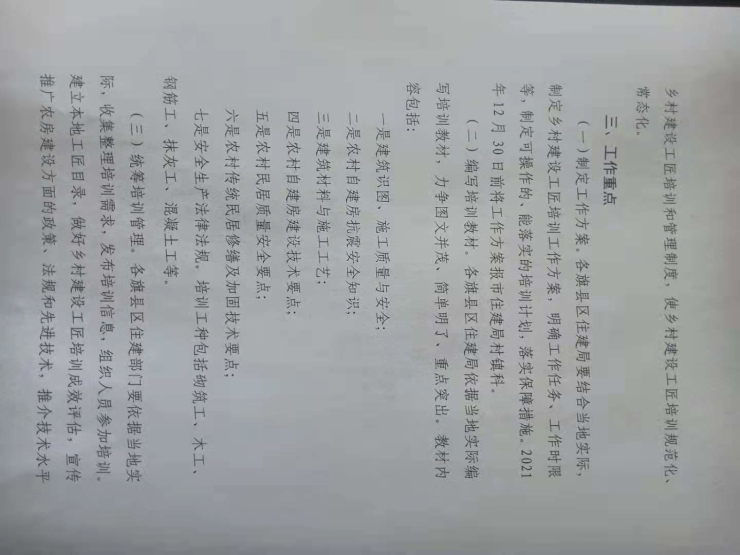 乡村建设工匠培训和管理制度，使乡村建设工匠培训规范化、
常态化。
三、工作重点
（一）制定工作方案。各旗县区住建局要结合当地实际，
制定乡村建设工匠培训工作方案，明确工作任务、工作时限
等，制定可操作的、能落实的培训计划，落实保障措施。2021
年 12 月 30 日前将工作方案报市住建局村镇科。
（二）编写培训教材。各旗县区住建局依据当地实际编
写培训教材，力争图文并茂、简单明了、重点突出。教材内
容包括：
一是建筑识图、施工质量与安全；
二是农村自建房抗震安全知识；
三是建筑材料与施工工艺；
四是农村自建房建设技术要点；
五是农村民居质量安全要点；
六是农村传统民居修缮及加固技术要点；
七是安全生产法律法规。培训工种包括砌筑工、木工、
钢筋工、抹灰工、混凝土工等。
（三）统筹培训管理。各旗县区住建部门要依据当地实
际，收集整理培训需求，发布培训信息，组织人员参加培训。
建立本地工匠目录，做好乡村建设工匠培训成效评估，宣传
推广农房建设方面的政策、法规和先进技术，推介技术水平